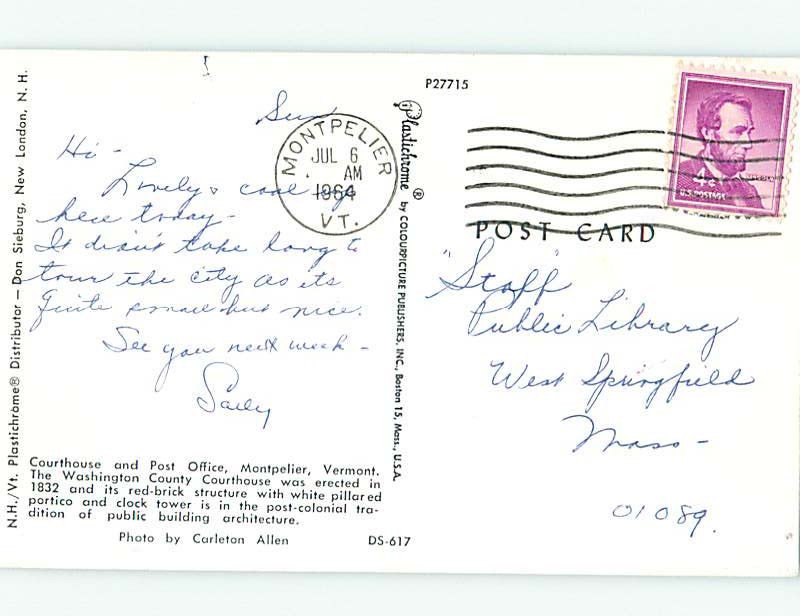 Sun
Hi -
Lovely & cool
here today -
It didn't take long to
tour the city as its
Quite small but nice.
See you next week -
Sally
Courthouse and Post Office, Montpelier, Vermont.
The Washington County Courthouse was erected in
1832 and its red-brick structure with white pillared
portico and clock tower is in the post-colonial tra-
dition of public building architecture.
Photo by Carleton Allen DS-617
N.H./Vt. Plastichrome® Distributor — Don Sieburg, New London, N. H.
MONTPELIER
JUL 6
AM
1964
VT.
Plastichrome® by COLOURPICTURE PUBLISHERS, INC., Boston 15, Mass., U.S.A.
P27715
4¢
LINCOLN
U.S. POSTAGE
POST CARD
"Staff"
Public Library
West Springfield
Mass -
01089.